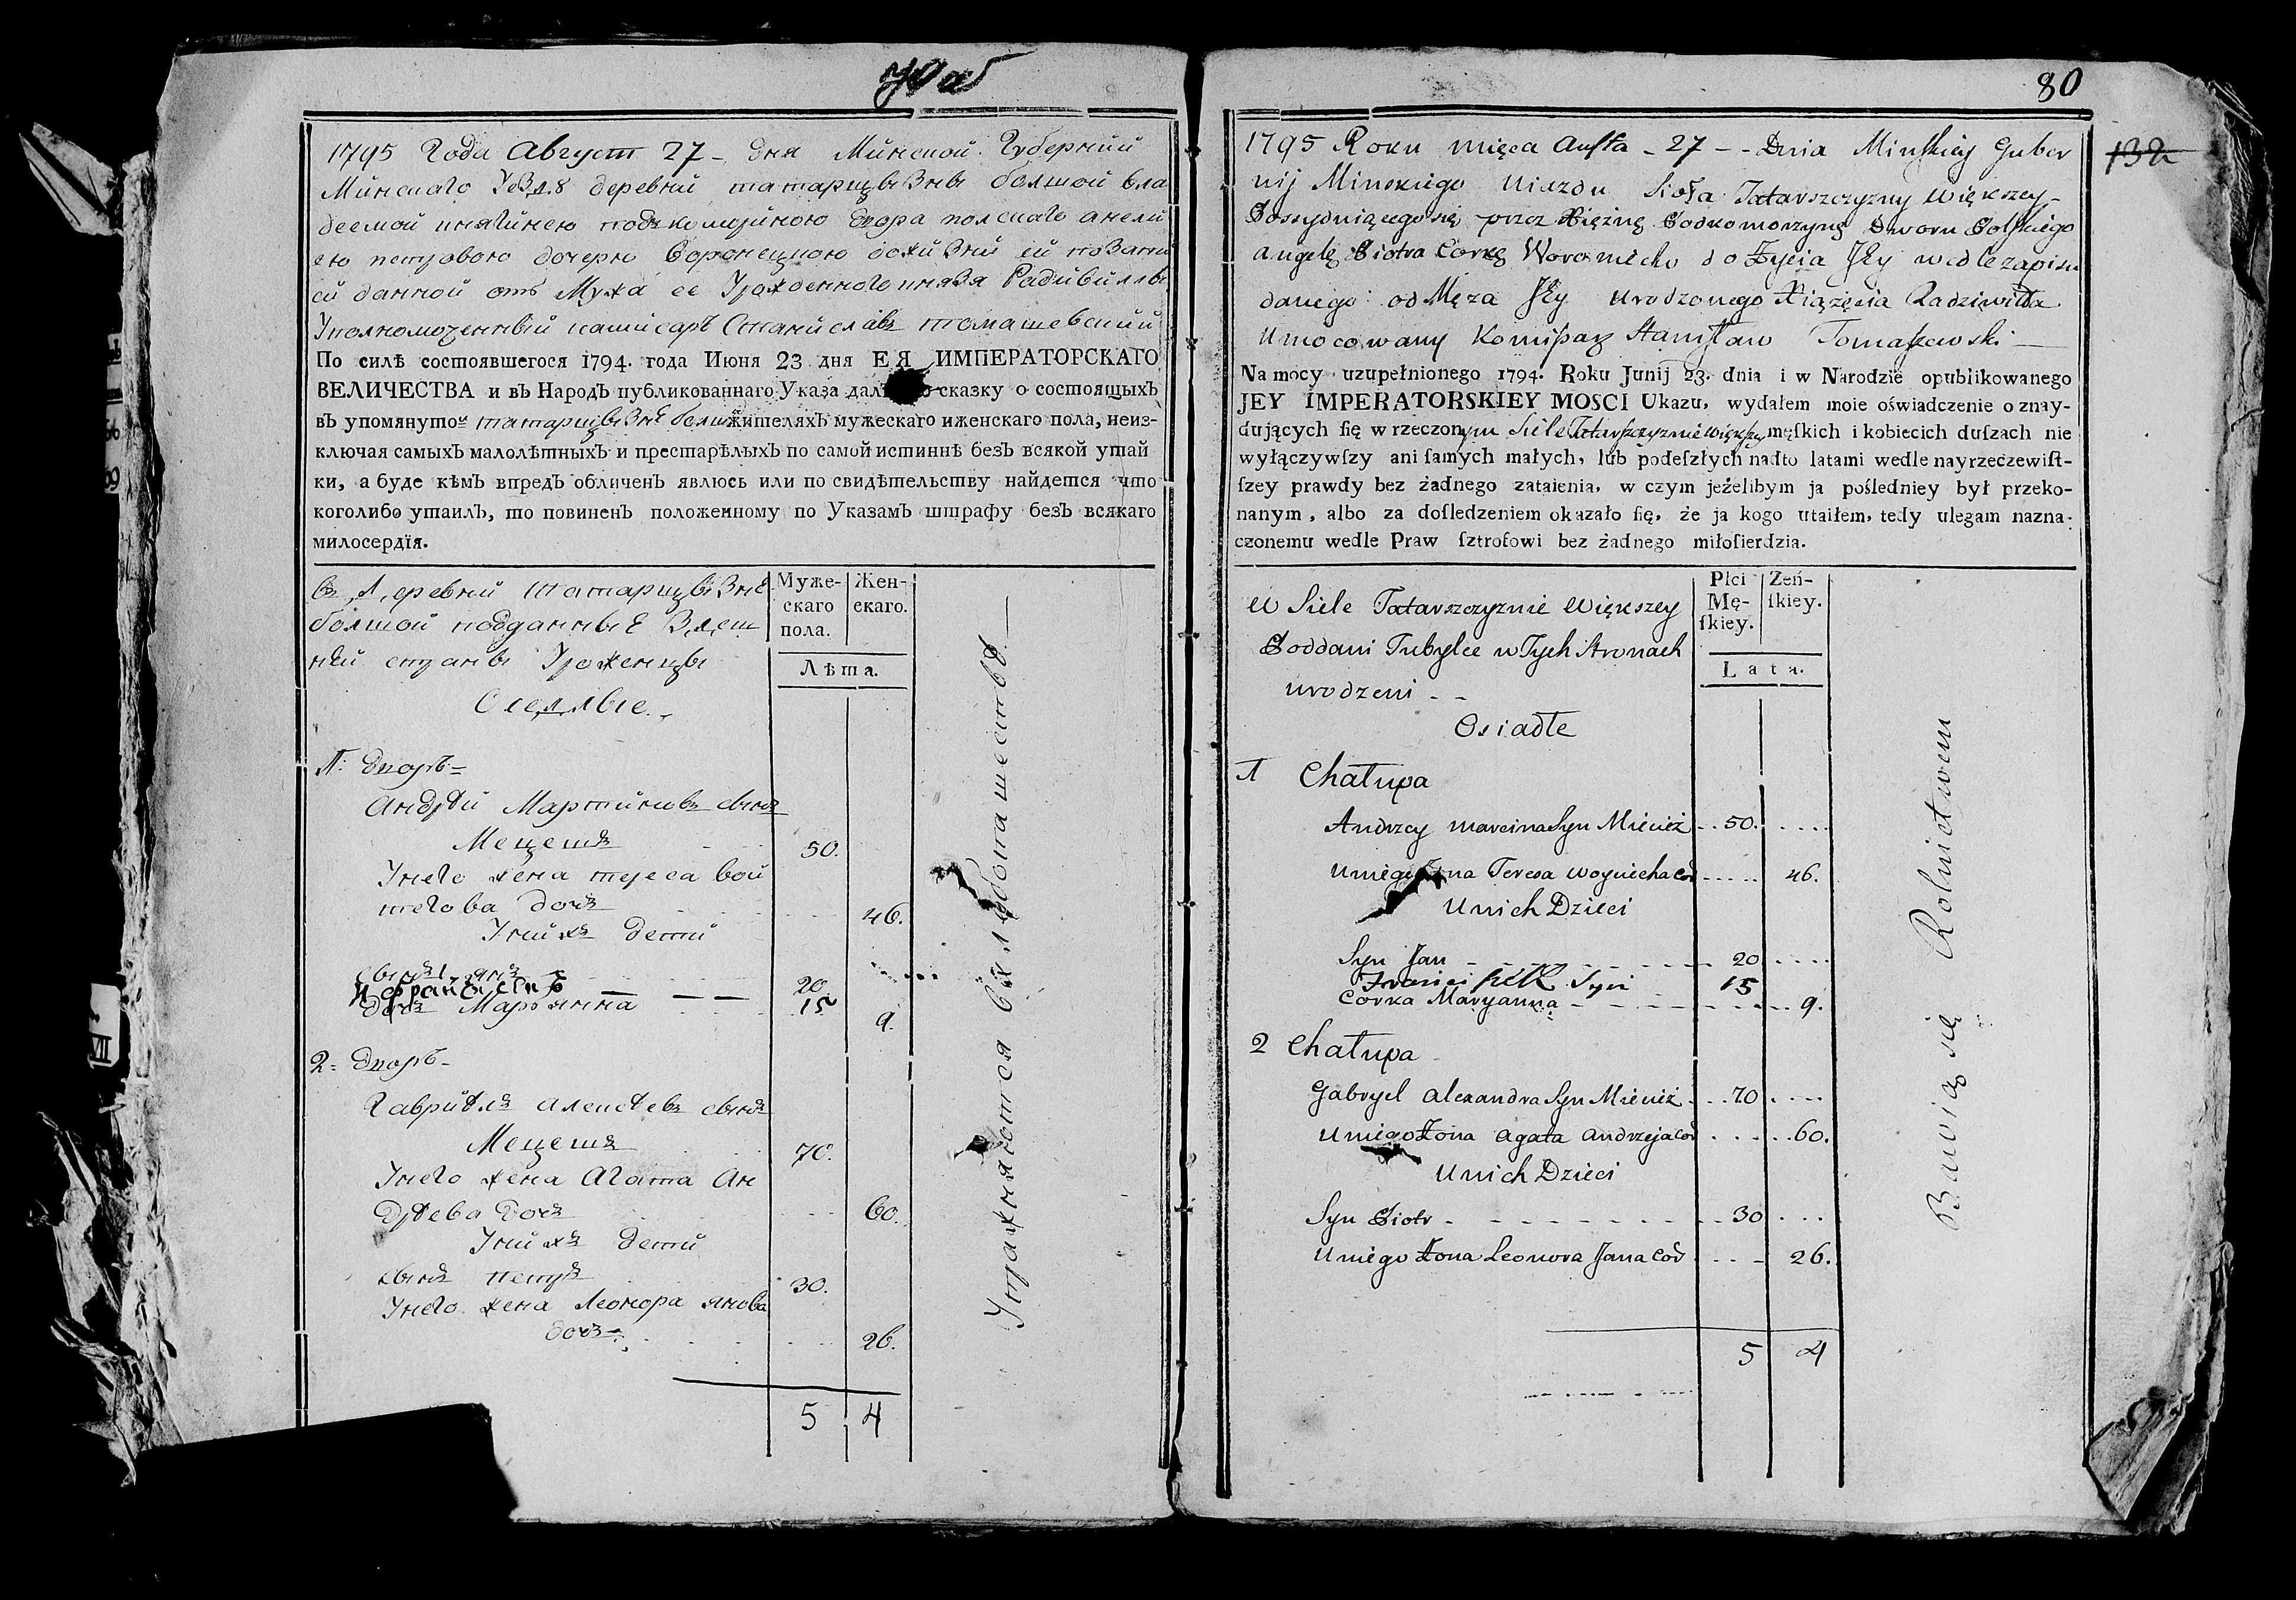 1795 Года Август 27 - дня Минской Губернии
Минскаго деревни татарщызны болшой вла
деемой княгинею подъкоморйною двора полскаго анели
ею петровою дочерю Воронецкою
ей данной отъ Мужа ее Урожденного князя Радивилла
Уполномоченный Станиславъ томашевский
По силѣ состоявшегося 1794. года Июня 23 дня ЕЯ ИМПЕРАТОРСКАГО
ВЕЛИЧЕСТВА и въ Народъ публикованнаго Указа сказку о состоящыхъ
въ упомянутой татарщызнѣ болш жителяхъ мужескаго иженскаго пола, неиз-
ключая самыхъ малолѣтныхъ и престарѣлыхъ по самой истиннѣ безъ всякой утай
ки, а буде кѣмъ впредъ обличенъ явлюсь или по свидѣтельству найдется что
коголибо утаилъ, то повиненъ положенному по Указамъ штрафу безъ всякаго
милосердїя.
Въ деревни татарщызнѣ
болшой подданные
Уроженцы
Оседлые.
Муже-
скаго
пола.
Жен-
скаго.
Лѣта.
1: дворъ =
андрѣй Мартиновъ сынъ
Мецешъ 50.
Унего жена тереса вой
техова дочъ 46.
Унихъ дети
сынъ янъ 20
И Францишекъ — — 15
дочъ Марьянна 9.
2 = дворъ -
Гавриѣлъ алексѣевъ сынъ
Мецешъ 70.
Унего жена Агата Ан
дрѣева дочъ 60.
Унихъ дети
сынъ петръ 30.
Унего жена Леонора янова
дочъ 26.
5 4
80
132
1795 Roku mięca Augsta - 27 - - Dnia Minskiey Guber
nij Minskiego Uiazdu Sioła Tatarszczyzny Większey -
Possydniącego się przez Xiężnę Podkomorzynę Dworu Polskiego
Angelę Piotra Corkę Woroniecko do Życia Jey wedle zapisu
danego od Męza Jey Urodzonego Xiążęcia Radziwiłła
Umocowany Komissarz Stanisław Tomaszewski —
Na mocy uzupełnionego 1794. Roku Junij 23. dnia i w Narodzie opublikowanego
JEY IMPERATORSKIEY MOSCI Ukazu, wydałem moie oświadczenie o znay-
dujących ſię w rzeczonym Siele Tatarszczyznie większey męſkich i kobiecich duſzach nie
wyłączywſzy ani ſamych małych, lub podeſzłych nadto latami wedle nayrzeczewiſt-
ſzey prawdy bez żadnego zataienia, w czym jeżelibym ja pośledniey był przeko-
nanym, albo za doſledzeniem okazało ſię, że ja kogo utaiłem, tedy ulegam nazna-
czonemu wedle Praw ſztrofowi bez żadnego miłoſierdzia.
W Siele Tatarszczyznie Większey
Poddani Tubylce w Tych Stronach
urodzeni - -
Osiadłe
Płci
Mę-
ſkiey.
Zeń-
ſkiey.
Lata.
1 Chałupa
Andrzey Marcina Syn Miecież 50.
U niego Żona Teresa Woyciecha Cor 46.
U nich Dzieci
Syn Jan 20
Franciszek Syn 15
Corka Maryanna 9.
2 Chałupa
Gabryel Alexandra Syn Miecież 70
U niego Żona Agata Andrzeja Cor 60.
U nich Dzieci
Syn Piotr 30
U niego Żona Leonora Jana Cor 26.
5 4
Bawią się Rolnictwem